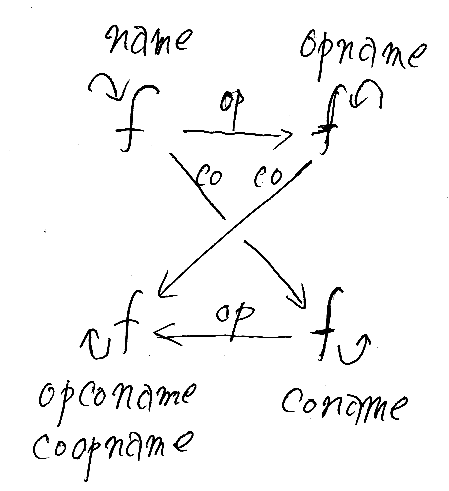 name
opname
f
op
f
co
co
f
op
f
opconame
coopname
coname